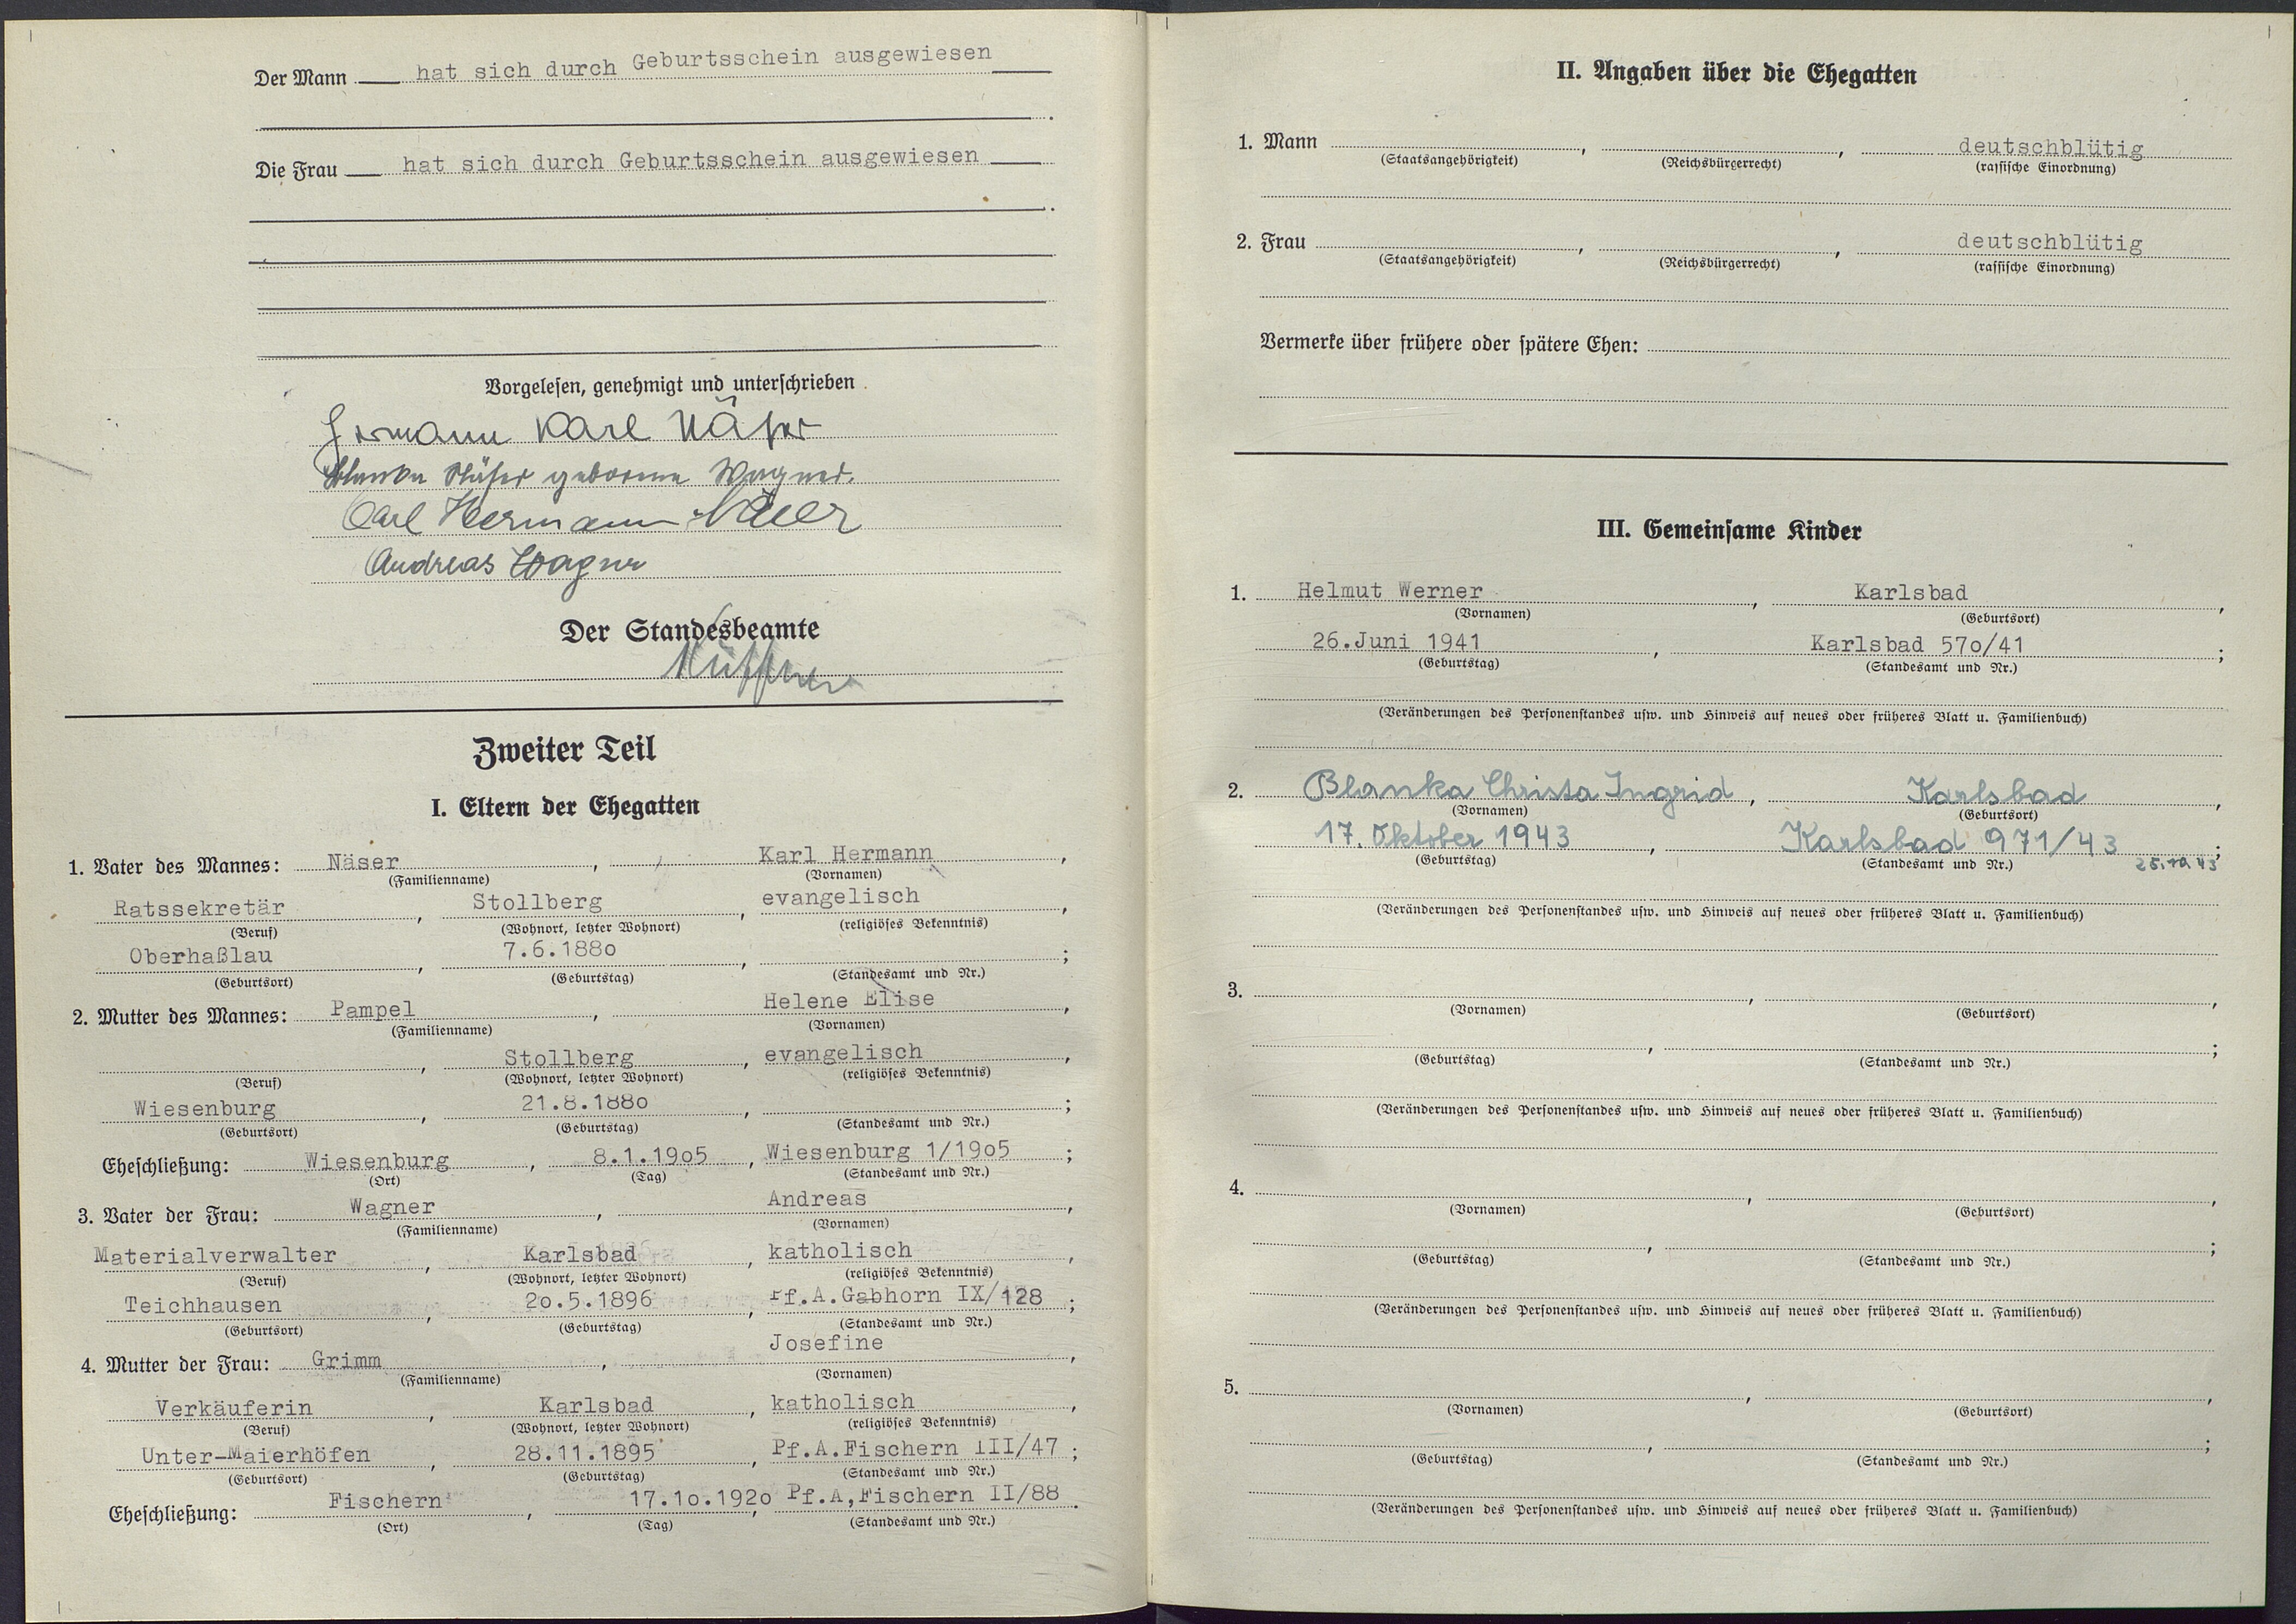 Der Mann hat sich durch Geburtsschein ausgewiesen
Die Frau hat sich durch Geburtsschein ausgewiesen
Vorgelesen, genehmigt und unterschrieben
Hermann Karl Näser
Blanka Näser geborene Wagner.
Carl Hermann Näser
Andreas Wagner
Der Standesbeamte
Zweiter Teil
I. Eltern der Ehegatten
1. Vater des Mannes: Näser, Karl Hermann,
(Familienname) (Vornamen)
Ratssekretär, Stollberg, evangelisch,
(Beruf) (Wohnort, letzter Wohnort) (religiöses Bekenntnis)
Oberhaßlau, 7.6.188o, ;
(Geburtsort) (Geburtstag) (Standesamt und Nr.)
2. Mutter des Mannes: Pampel, Helene Elise,
(Familienname) (Vornamen)
, Stollberg, evangelisch,
(Beruf) (Wohnort, letzter Wohnort) (religiöses Bekenntnis)
Wiesenburg, 21.8.188o, ;
(Geburtsort) (Geburtstag) (Standesamt und Nr.)
Eheschließung: Wiesenburg, 8.1.19o5, Wiesenburg 1/19o5;
(Ort) (Tag) (Standesamt und Nr.)
3. Vater der Frau: Wagner, Andreas,
(Familienname) (Vornamen)
Materialverwalter, Karlsbad, katholisch,
(Beruf) (Wohnort, letzter Wohnort) (religiöses Bekenntnis)
Teichhausen, 2o.5.1896, Pf.A.Gabhorn IX/128;
(Geburtsort) (Geburtstag) (Standesamt und Nr.)
4. Mutter der Frau: Grimm, Josefine,
(Familienname) (Vornamen)
Verkäuferin, Karlsbad, katholisch,
(Beruf) (Wohnort, letzter Wohnort) (religiöses Bekenntnis)
Unter-Maierhöfen, 28.11.1895, Pf.A.Fischern III/47;
(Geburtsort) (Geburtstag) (Standesamt und Nr.)
Eheschließung: Fischern, 17.1o.192o, Pf.A,Fischern II/88.
(Ort) (Tag) (Standesamt und Nr.)
II. Angaben über die Ehegatten
1. Mann , , deutschblütig
(Staatsangehörigkeit) (Reichsbürgerrecht) (rassische Einordnung)
2. Frau , , deutschblütig
(Staatsangehörigkeit) (Reichsbürgerrecht) (rassische Einordnung)
Vermerke über frühere oder spätere Ehen:
III. Gemeinsame Kinder
1. Helmut Werner, Karlsbad,
(Vornamen) (Geburtsort)
26.Juni 1941, Karlsbad 57o/41;
(Geburtstag) (Standesamt und Nr.)
(Veränderungen des Personenstandes usw. und Hinweis auf neues oder früheres Blatt u. Familienbuch)
2. Blanka Christa Ingrid, Karlsbad,
(Vornamen) (Geburtsort)
17. Oktober 1943, Karlsbad 971/43;
(Geburtstag) (Standesamt und Nr.) 25.10.43
(Veränderungen des Personenstandes usw. und Hinweis auf neues oder früheres Blatt u. Familienbuch)
3. , ,
(Vornamen) (Geburtsort)
, ;
(Geburtstag) (Standesamt und Nr.)
(Veränderungen des Personenstandes usw. und Hinweis auf neues oder früheres Blatt u. Familienbuch)
4. , ,
(Vornamen) (Geburtsort)
, ;
(Geburtstag) (Standesamt und Nr.)
(Veränderungen des Personenstandes usw. und Hinweis auf neues oder früheres Blatt u. Familienbuch)
5. , ,
(Vornamen) (Geburtsort)
, ;
(Geburtstag) (Standesamt und Nr.)
(Veränderungen des Personenstandes usw. und Hinweis auf neues oder früheres Blatt u. Familienbuch)